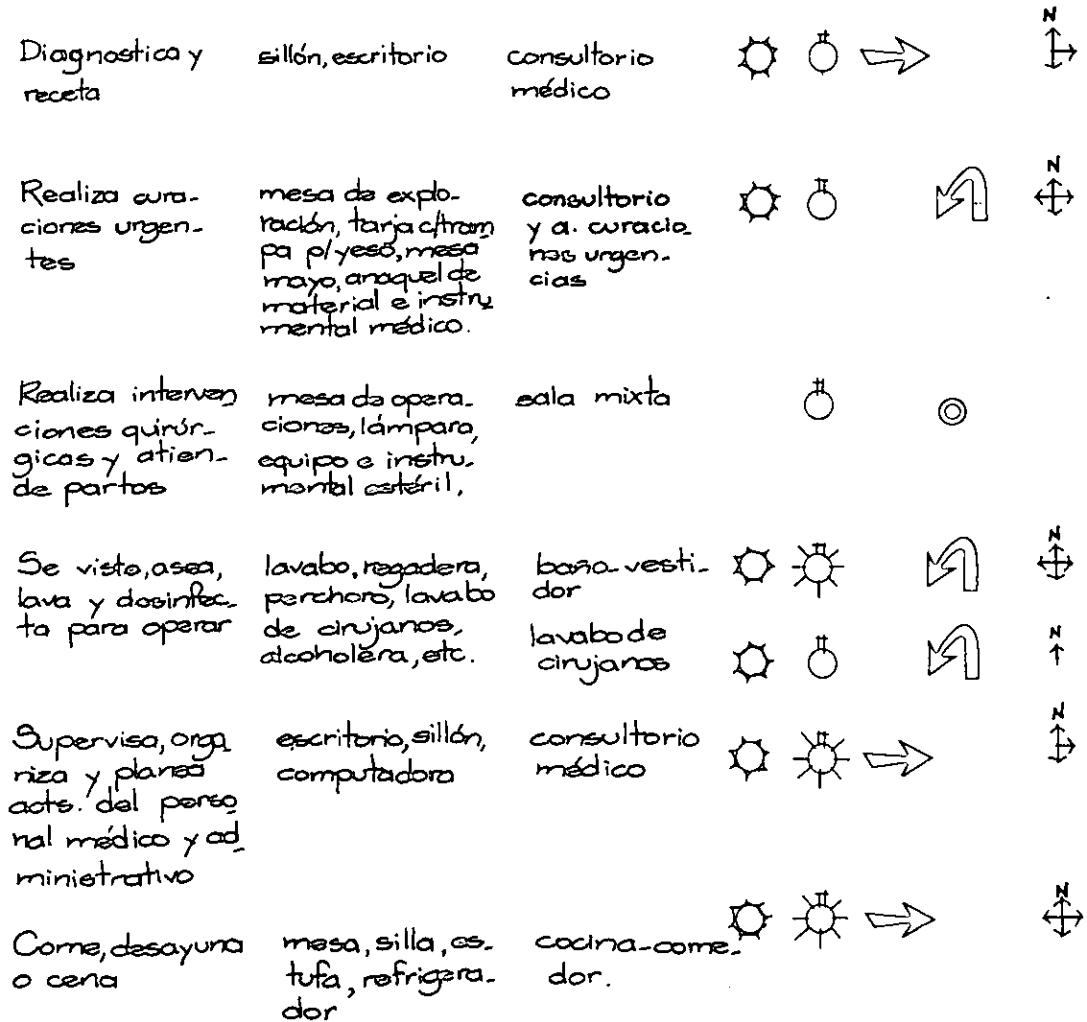 N
Diagnostica y
receta
sillón, escritorio
consultorio
médico
Realiza cura-
ciones urgen-
tes
mesa de explo-
ración, tarja c/tram
pa p/yeso, mesa
mayo, anaquel de
material e instru
mental médico.
consultorio
y a. curacio-
nes urgen-
cias
N
Realiza interven
ciones quirúr-
gicas y atien-
de partos
mesa de opera-
ciones, lámpara,
equipo e instru-
mental estéril.
sala mixta
Se viste, asea,
lava y desinfec-
ta para operar
lavabo, regadera,
perchero, lavabo
de cirujanos,
alcoholera, etc.
baño-vesti-
dor
N
lavabo de
cirujanos
N
Supervisa, orga
niza y planea
acts. del perso
nal médico y ad
ministrativo
escritorio, sillón,
computadora
consultorio
médico
N
Come, desayuna
o cena
mesa, silla, es-
tufa, refrigera-
dor
cocina-come-
dor.
N